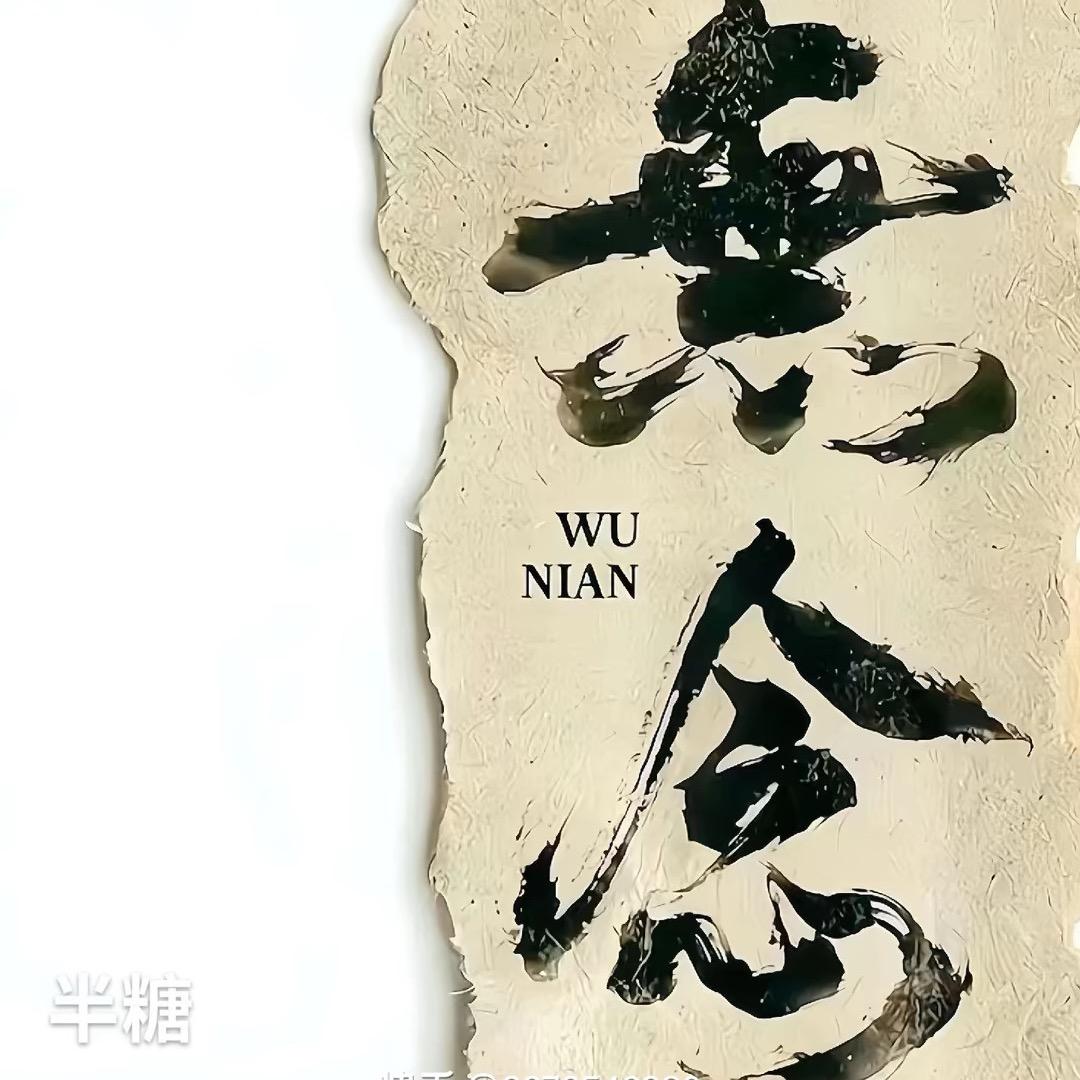 無念
WU
NIAN
半糖